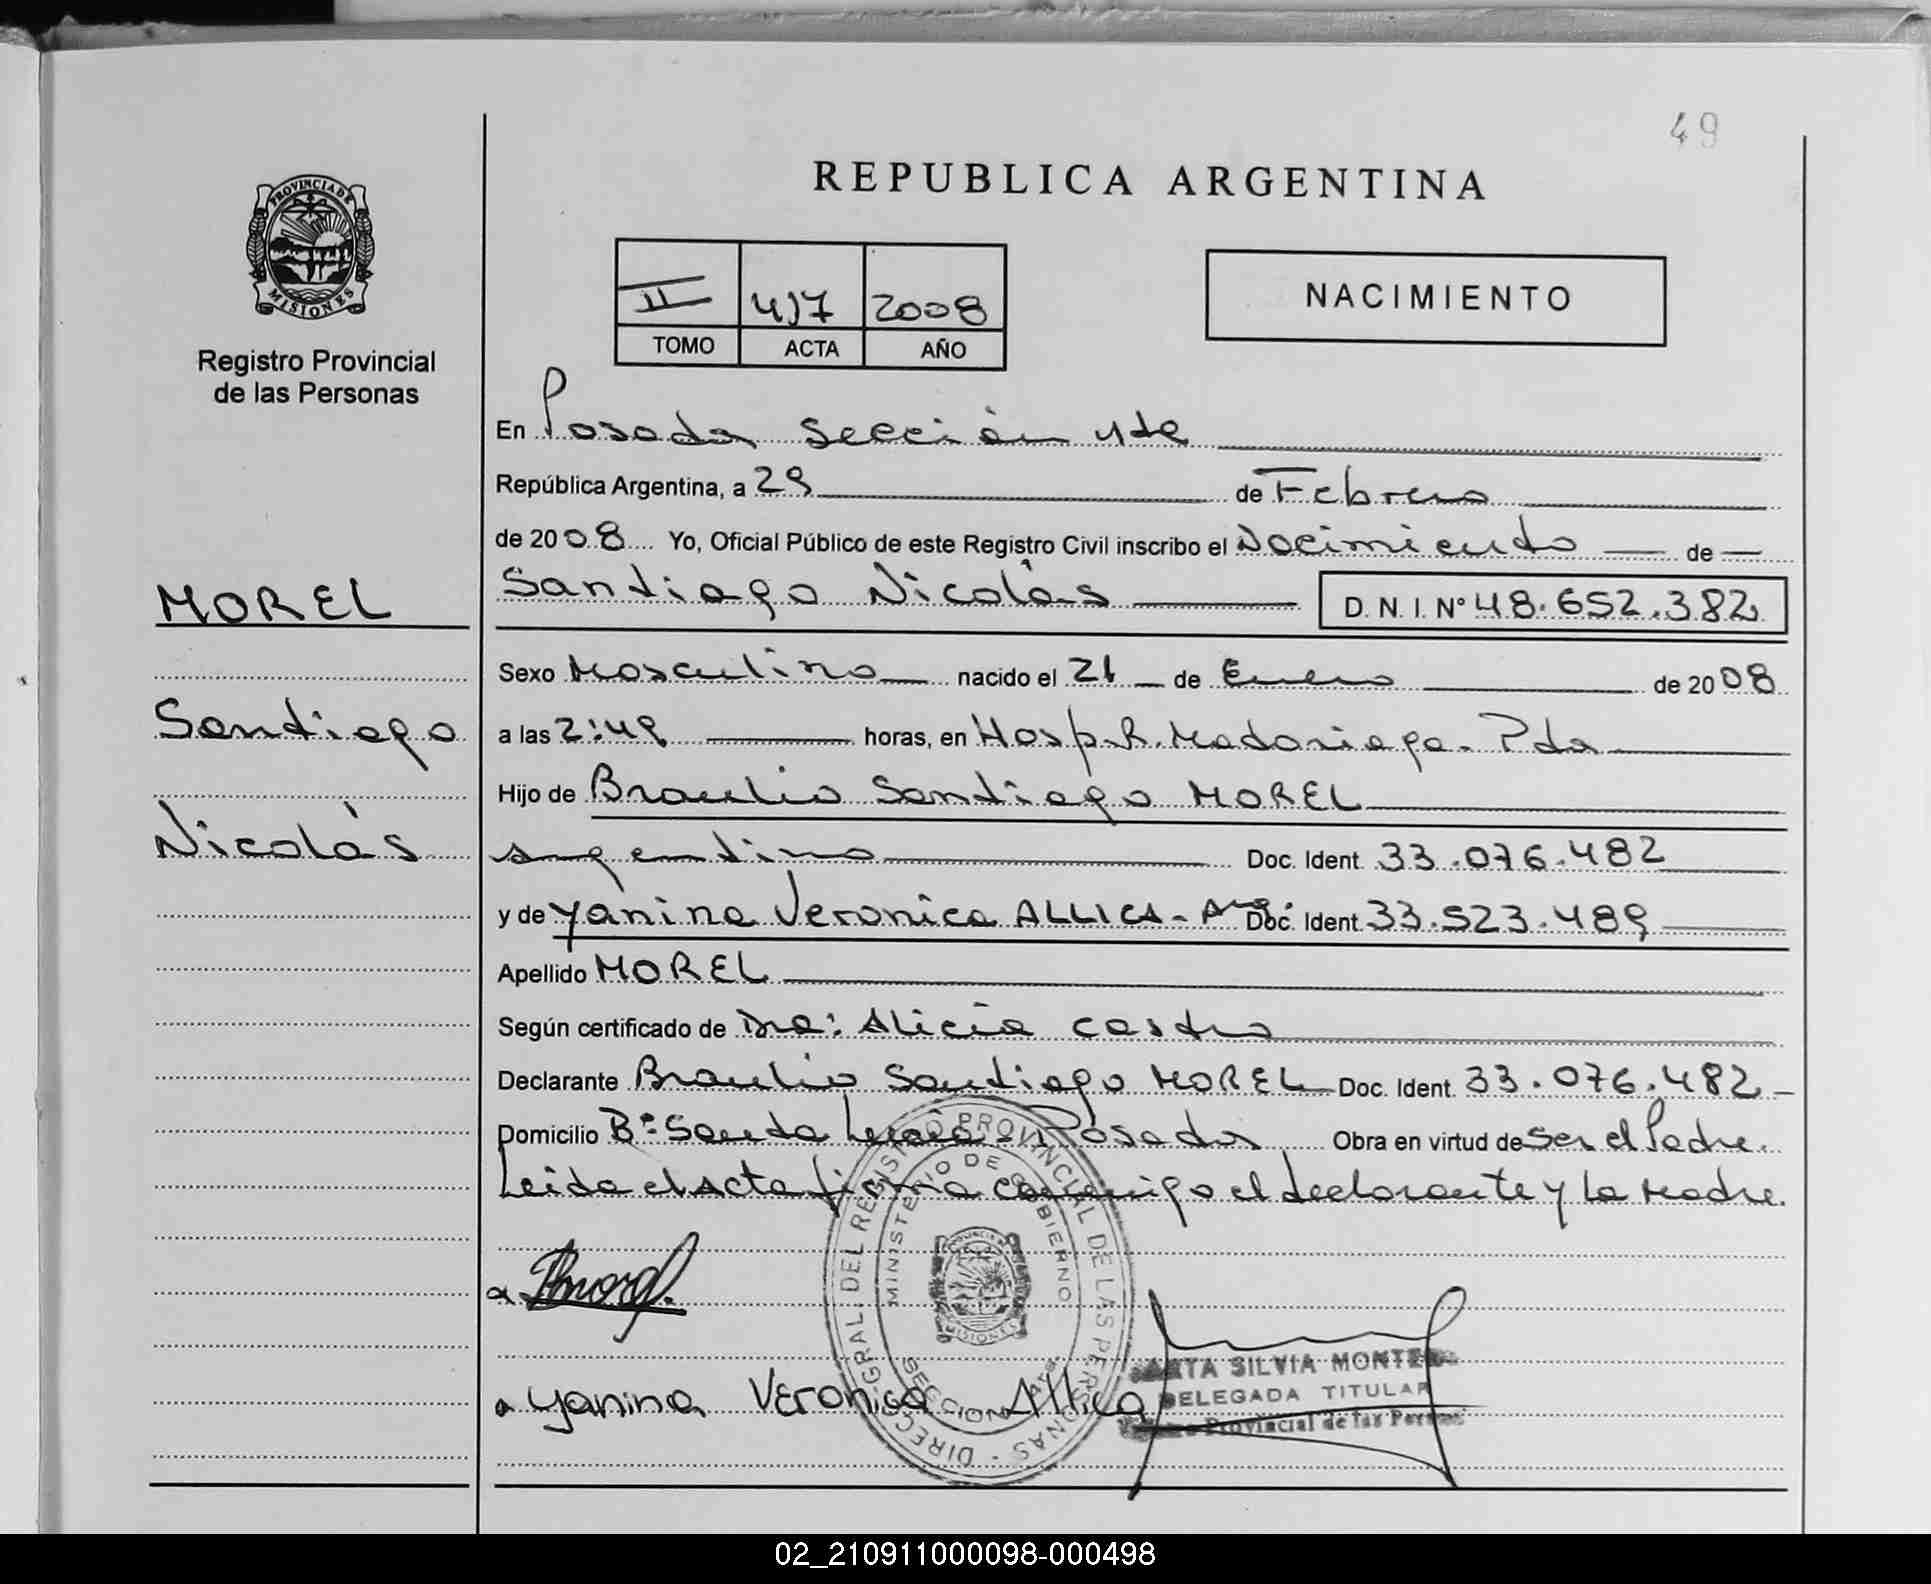 49
PROVINCIA DE
MISIONES
Registro Provincial
de las Personas
REPUBLICA ARGENTINA
II 417 2008
TOMO ACTA AÑO
NACIMIENTO
En Posadas Sección 1ra
República Argentina, a 29 de Febrero
de 2008 Yo, Oficial Público de este Registro Civil inscribo el Nacimiento de
MOREL
Santiago Nicolás D. N. I. Nº 48.652.382
Sexo Masculino nacido el 21 de Enero de 2008
Santiago
a las 2:49 horas, en Hosp. R. Madariaga. Pdas
Hijo de Braulio Santiago MOREL
Nicolás
argentino Doc. Ident. 33.076.482
y de Yanina Veronica ALLICA - Arg. Doc. Ident. 33.523.489
Apellido MOREL
Según certificado de Dra: Alicia Castro
Declarante Braulio Santiago MOREL Doc. Ident. 33.076.482
Domicilio Bº Santa Lucía - Posadas Obra en virtud de ser el Padre.
Leida el Acta firma conmigo el declarante y la Madre.
DIRECC. GRAL. DEL REGISTRO PROVINCIAL DE LAS PERSONAS
MINISTERIO DE GOBIERNO
PROVINCIA DE
MISIONES
SECCION 1ra
a BMorel.
a Yanina Veronica Allica
SILVIA MONTE
DELEGADA TITULAR
Provincial de las Personas
02_210911000098-000498